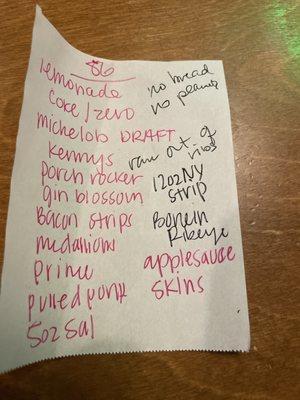 86
lemonade
coke/zero
michelob DRAFT
Kennys
porch rocker
gin blossom
Bacon strips
medallions
prime
pulled pork
5oz sal
no bread
no peanuts
ran out of
ribs
12oz NY
strip
Bonein
Ribeye
applesauce
skins